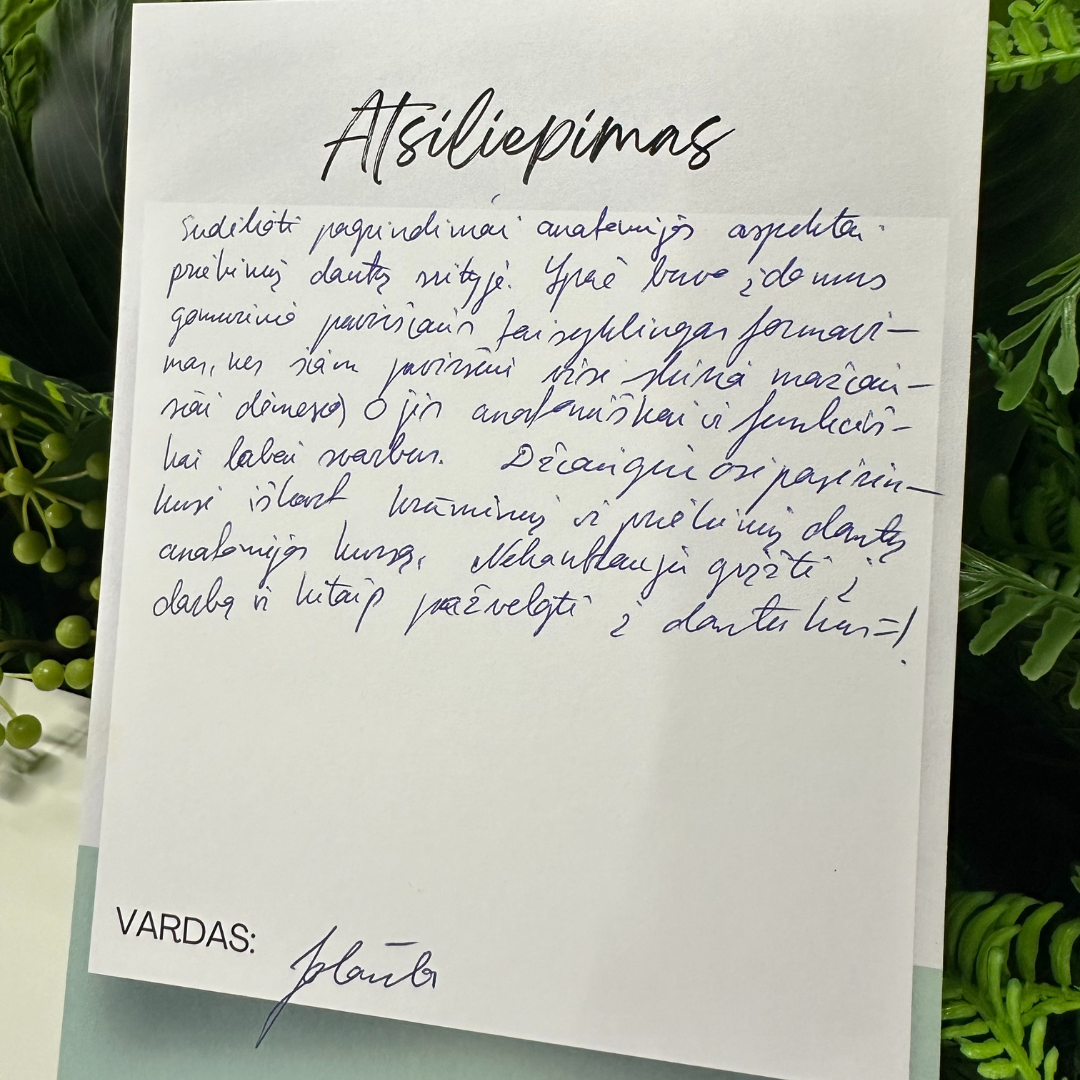 Atsiliepimas
Sudėlioti pagrindiniai anatomijos aspektai
priekinių dantų srityje. Ypač buvo įdomus
gomurinio paviršiaus taisyklingas formavi-
mas, nes šiam paviršiui visi skiria mažiau-
siai dėmesio, o jis anatomiškai ir funkciš-
kai labai svarbus. Džiaugiuosi pasirin-
kusi iškart krūminių ir priekinių dantų
anatomijos kursą. Nekantrauju grįžti į
darbą ir kitaip pažvelgti į dantukus =!
VARDAS: Jolanta